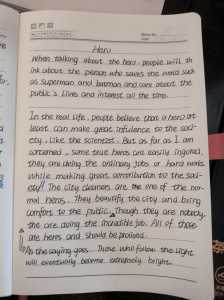 Hero
When talking about the hero, people will th
ink about the person who saves the world such
as Superman and batman and care about the
public's lives and interest all the time.
In the real life, people believe than a hero at
least can make great infulence to the soci-
ety, like the scientist. But as far as I am
concerned, some true heros are easily ingored,
they are doing the ordinary jobs or hard works
while making great contribution to the soci-
ety! The city cleaners are the one of the nor-
mal heros. They beautify the city and bring
comfort to the public. Though they are nobody,
the are doing the incredible job. All of those
are heros and should be praised.
As the saying goes: Those who follow the light
will eventually become extremely bright.